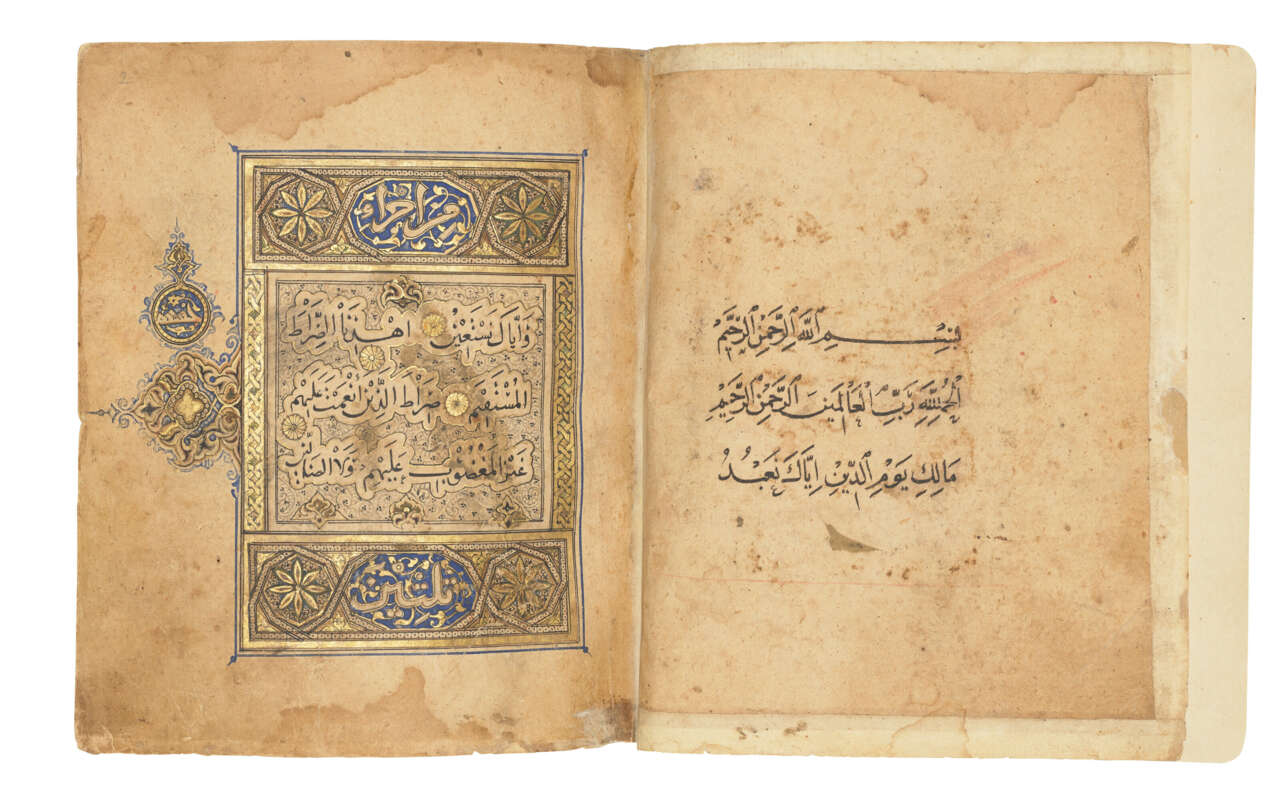 بِسْمِ اللَّهِ الرَّحْمَنِ الرَّحِيمِ
الْحَمْدُ لِلَّهِ رَبِّ الْعَالَمِينَ الرَّحْمَنِ الرَّحِيمِ
مَالِكِ يَوْمِ الدِّينِ اِيَّاكَ نَعْبُدُ
وَاِيَّاكَ نَسْتَعِينُ اهْدِنَا الصِّرَاطَ
الْمُسْتَقِيمَ صِرَاطَ الَّذِينَ اَنْعَمْتَ عَلَيْهِمْ
غَيْرِ الْمَغْضُوبِ عَلَيْهِمْ وَلَا الضَّالِّينَ
ثلثين